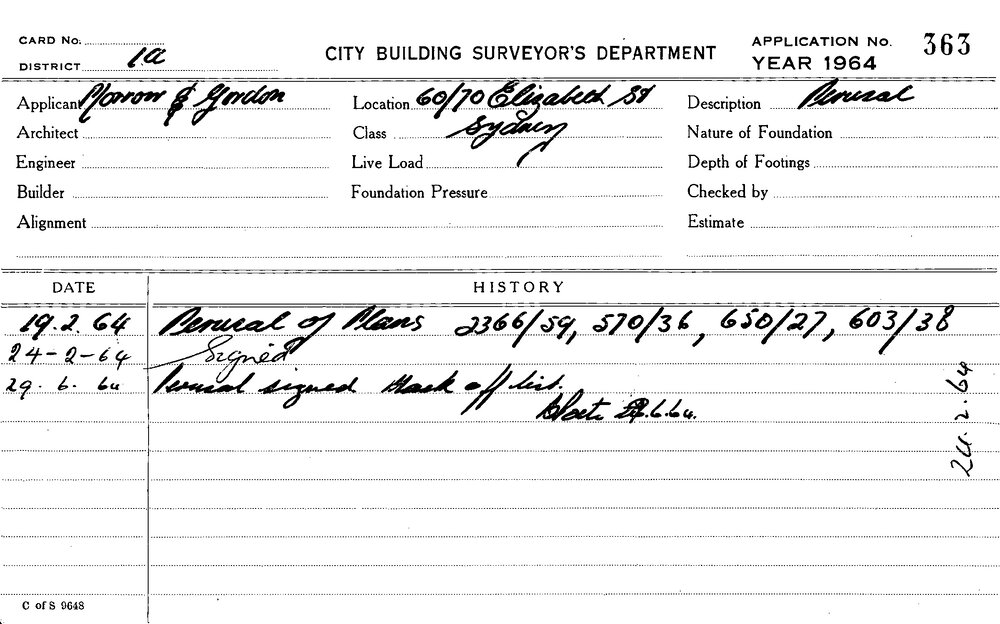 CARD No.
DISTRICT 1a
CITY BUILDING SURVEYOR'S DEPARTMENT
APPLICATION No. 363
YEAR 1964
Applicant Morrow & Gordon
Location 60/70 Elizabeth St
Description Perusal
Architect
Class Sydney
Nature of Foundation
Engineer
Live Load
Depth of Footings
Builder
Foundation Pressure
Checked by
Alignment
Estimate
DATE HISTORY
19.2.64 Perusal of Plans 2366/59, 570/36, 650/27, 603/38
24-2-64 Signed
29.6.64 Perusal signed Mark off list.
.6.64.
24.2.64
C of S 9648